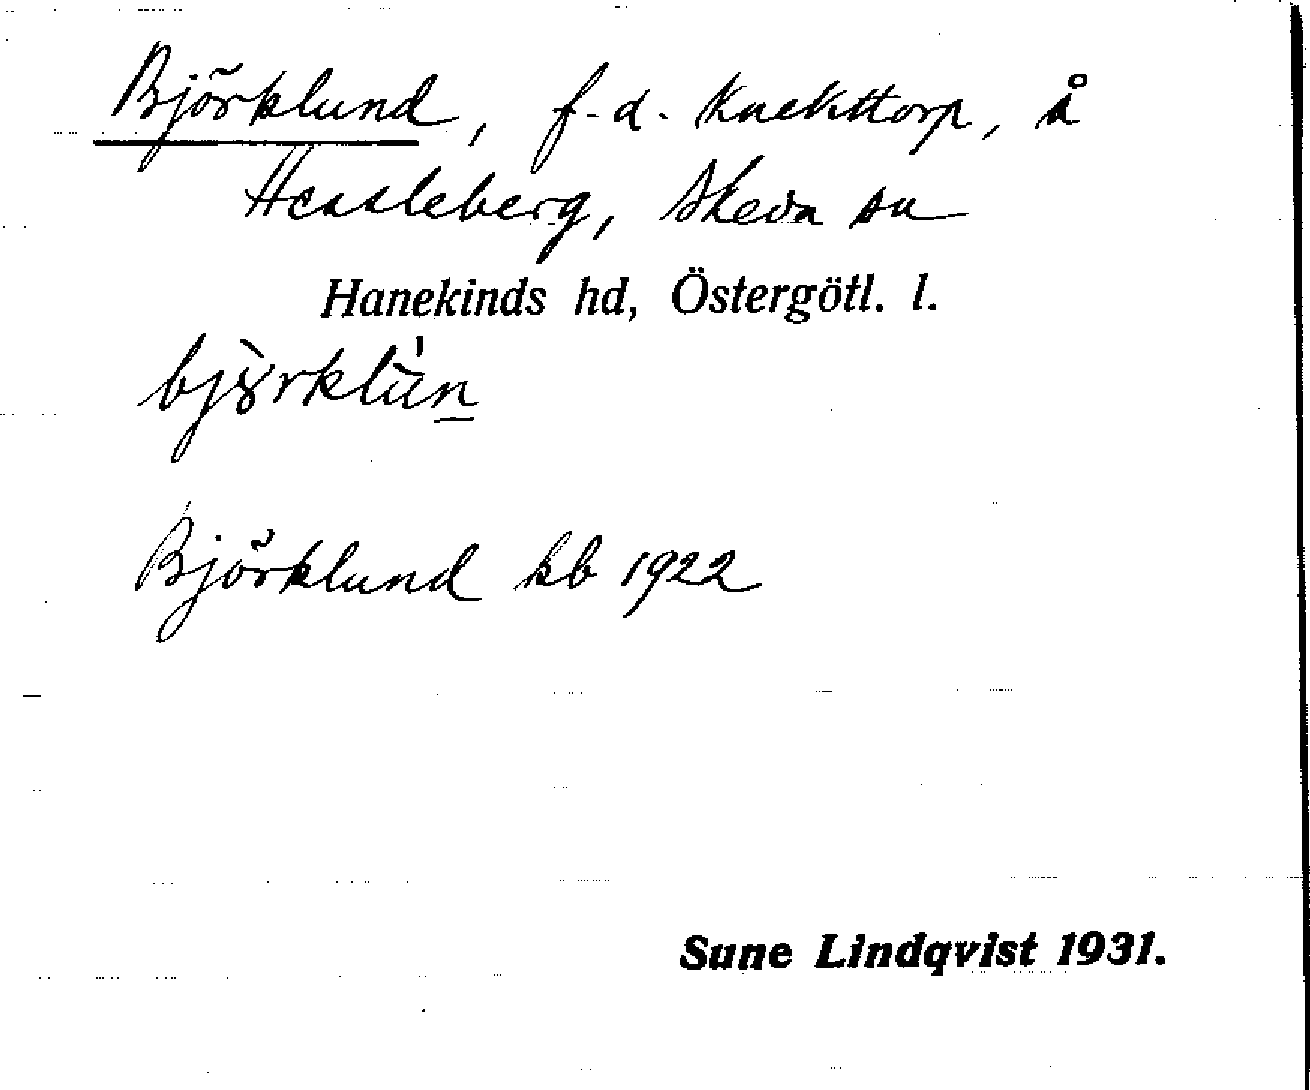 Björklund, f.d. knekttorp, å
Hessleberg, Skeda sn
Hanekinds hd, Östergötl. l.
Björklund kb 1922
Sune Lindqvist 1931.